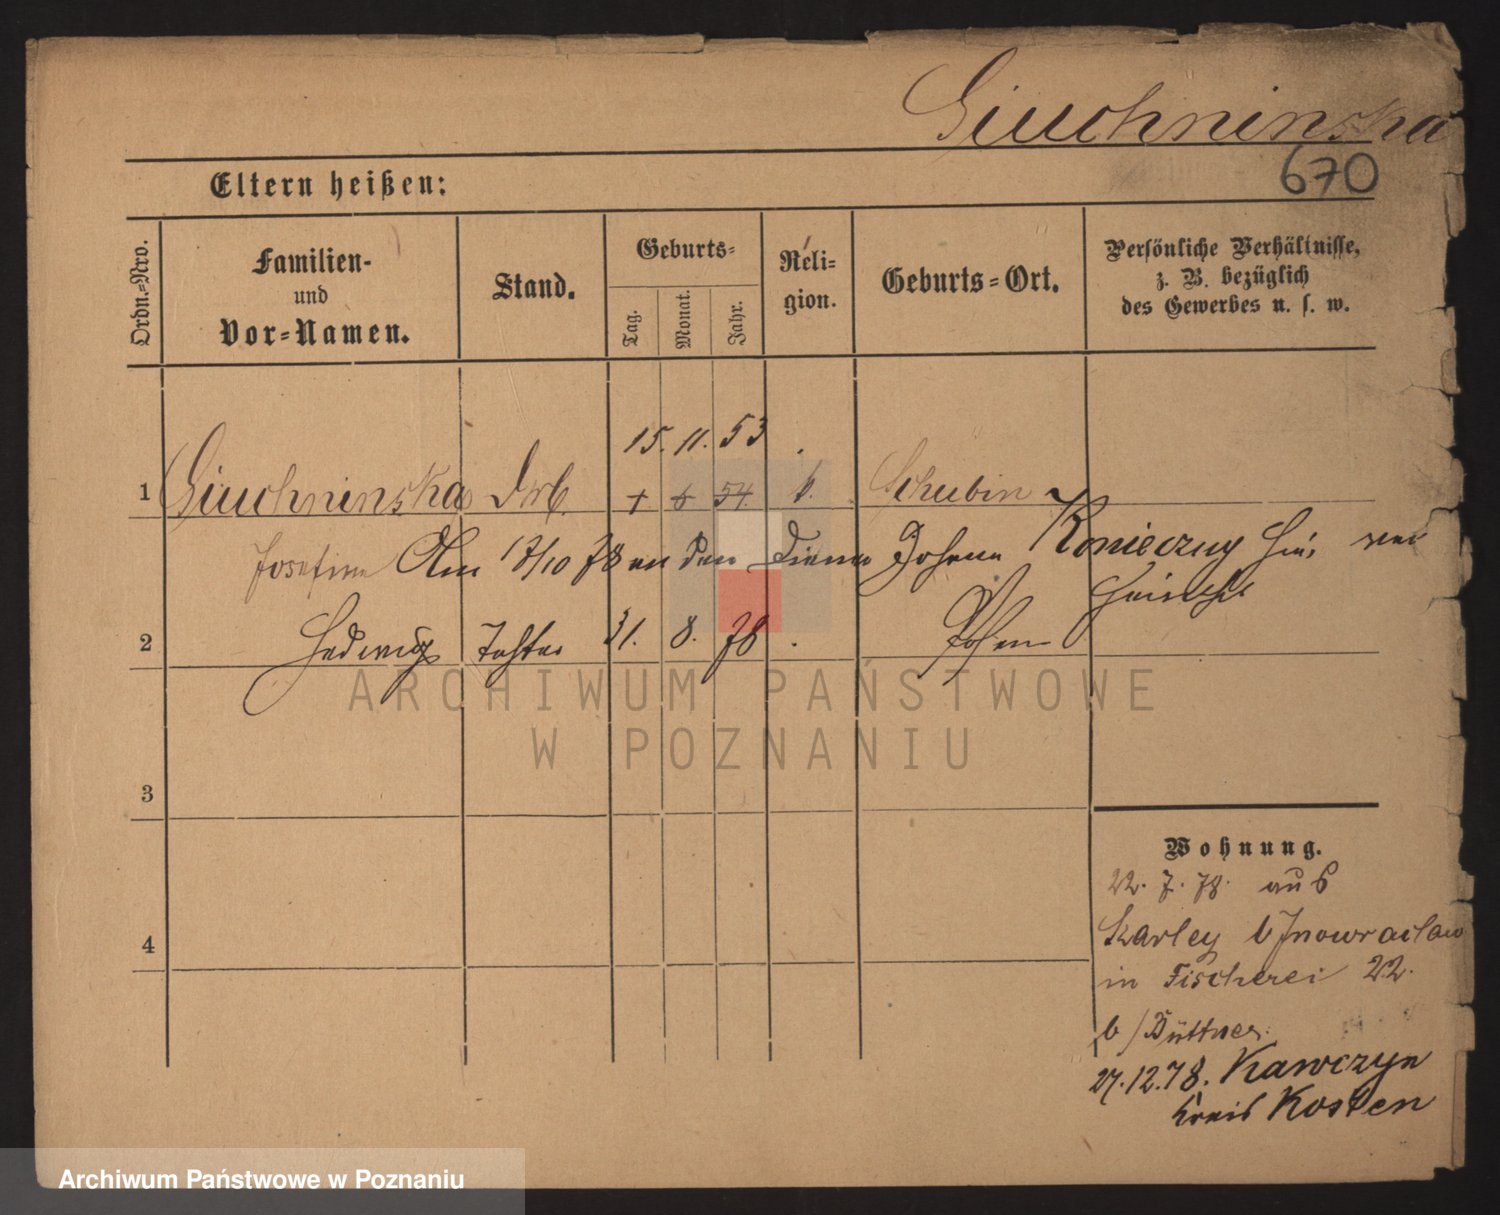 Giuchninska
670
Eltern heißen:
Ordn.-Nro.
Familien-
und
Vor-Namen.
Stand.
Geburts-
Tag.
Monat.
Jahr.
Reli-
gion.
Geburts-Ort.
Persönliche Verhältnisse,
z. B. bezüglich
des Gewerbes u. s. w.
15. 11. 53
1 Giuchninska 54. k. Schubin
Josefine Am 17/10 78 an den Diener Johann Konieczny hier ver
heirathet
2 Hedwig Tochter 31. 8. 78 Posen
ARCHIWUM PAŃSTWOWE
W POZNANIU
3
4
Wohnung.
22. 7. 78. aus
Karley b Inowraclaw
in Fischerei 22.
b/Büttner.
27.12.78. Kawczyn
Kreis Kosten
Archiwum Państwowe w Poznaniu